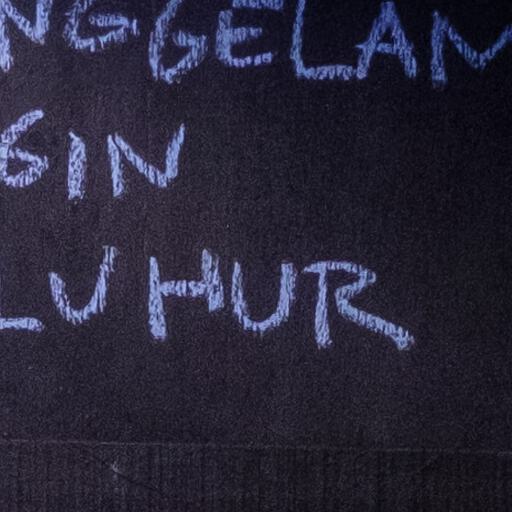 NGGELAM
GIN
LUHUR